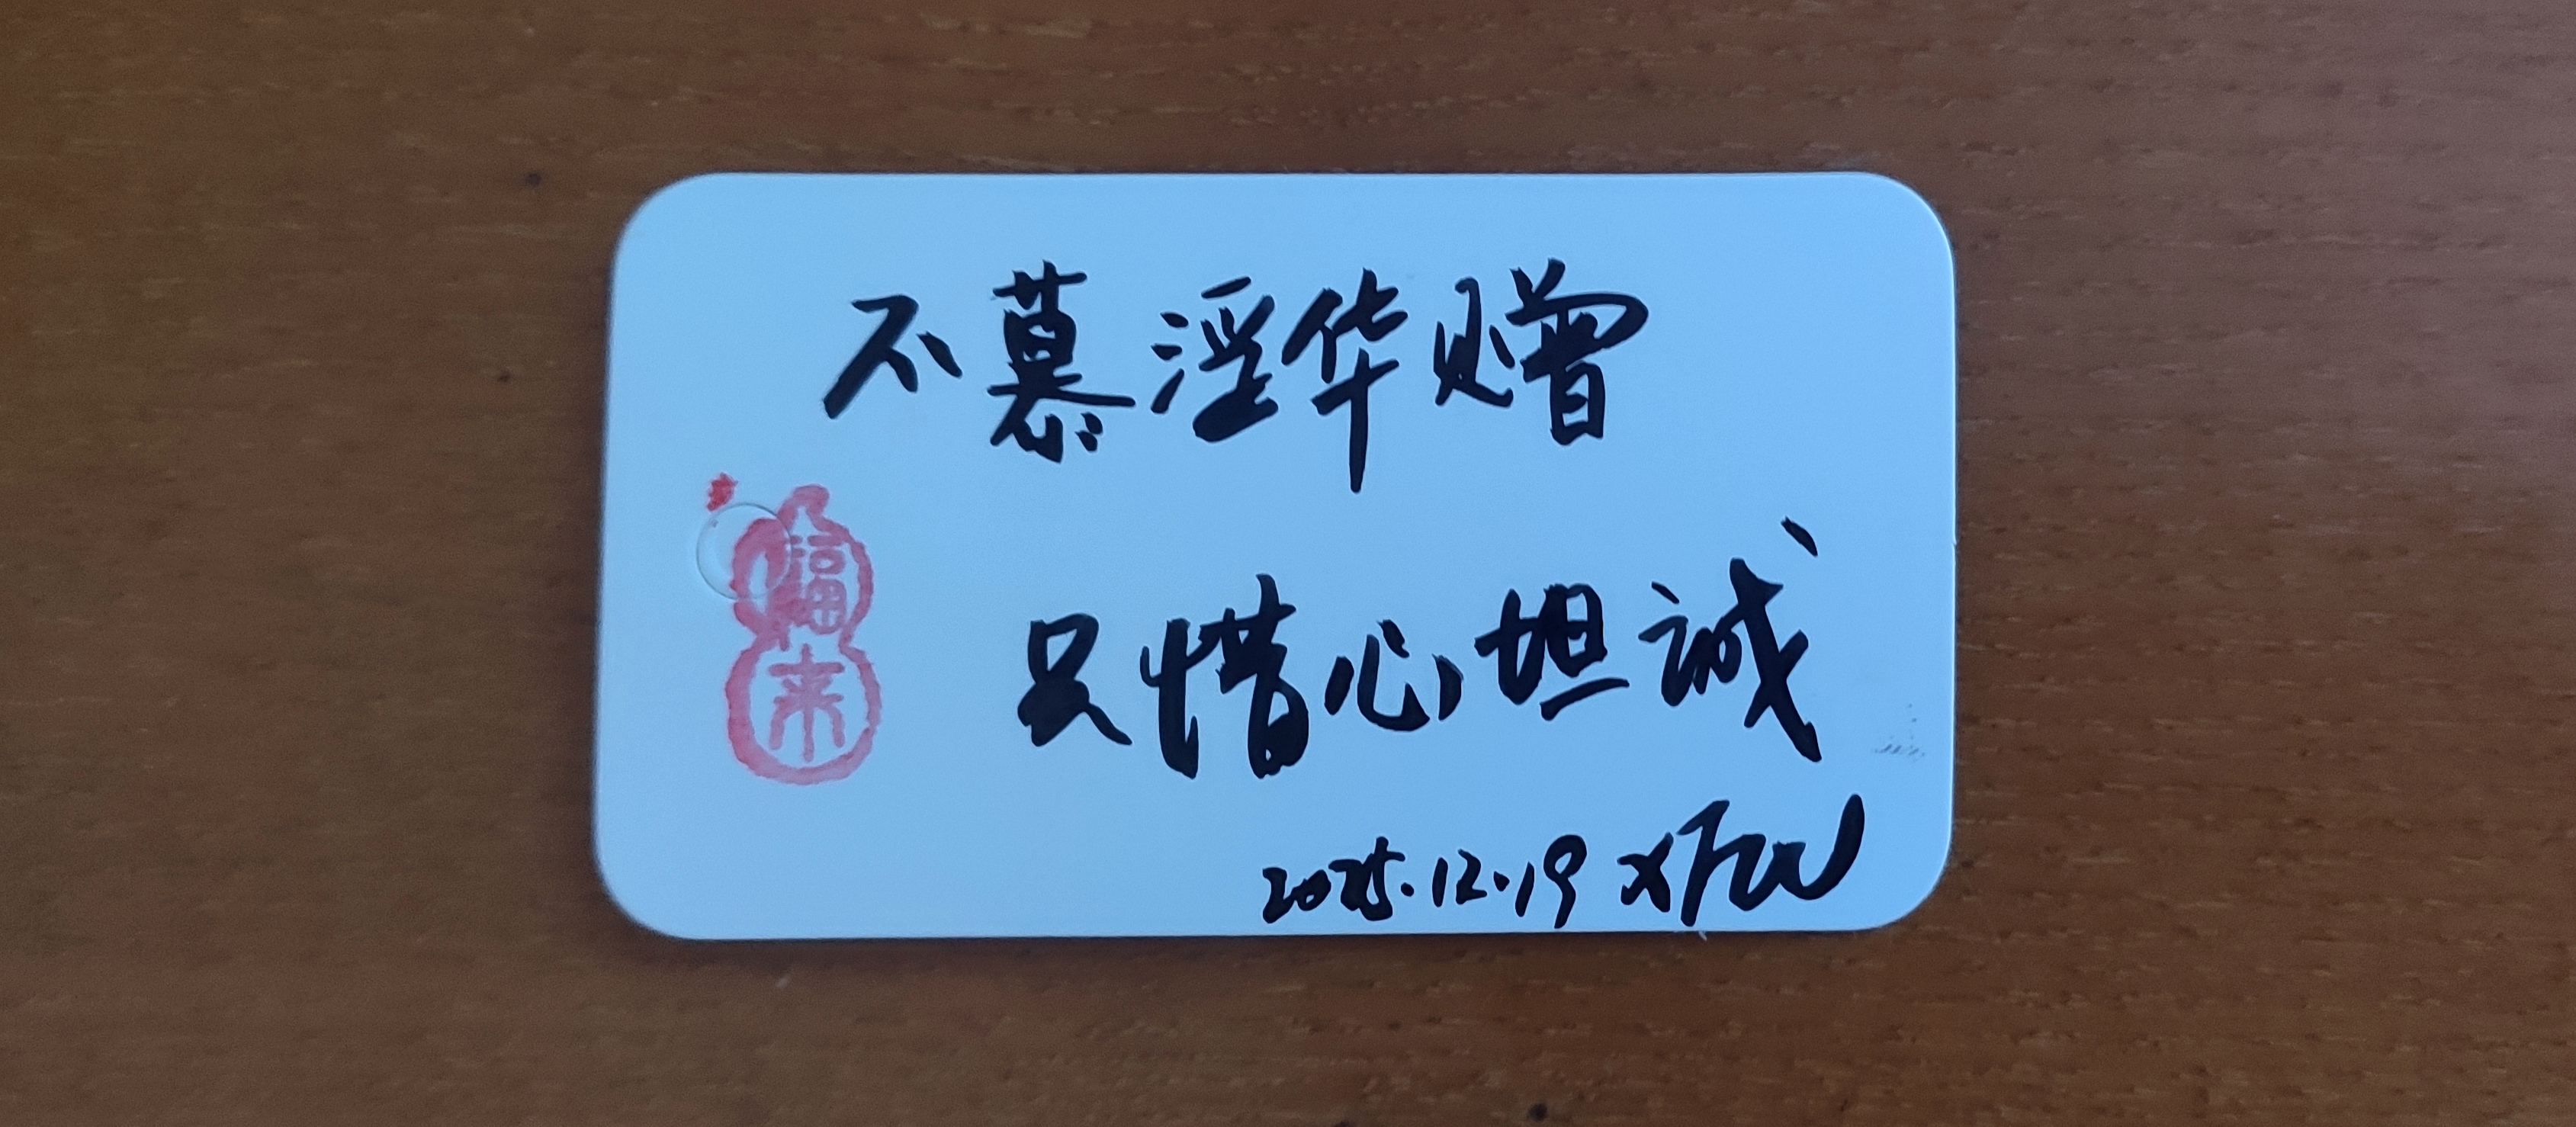 不慕淫华赠
只惜心坦诚
福来
2025.12.19